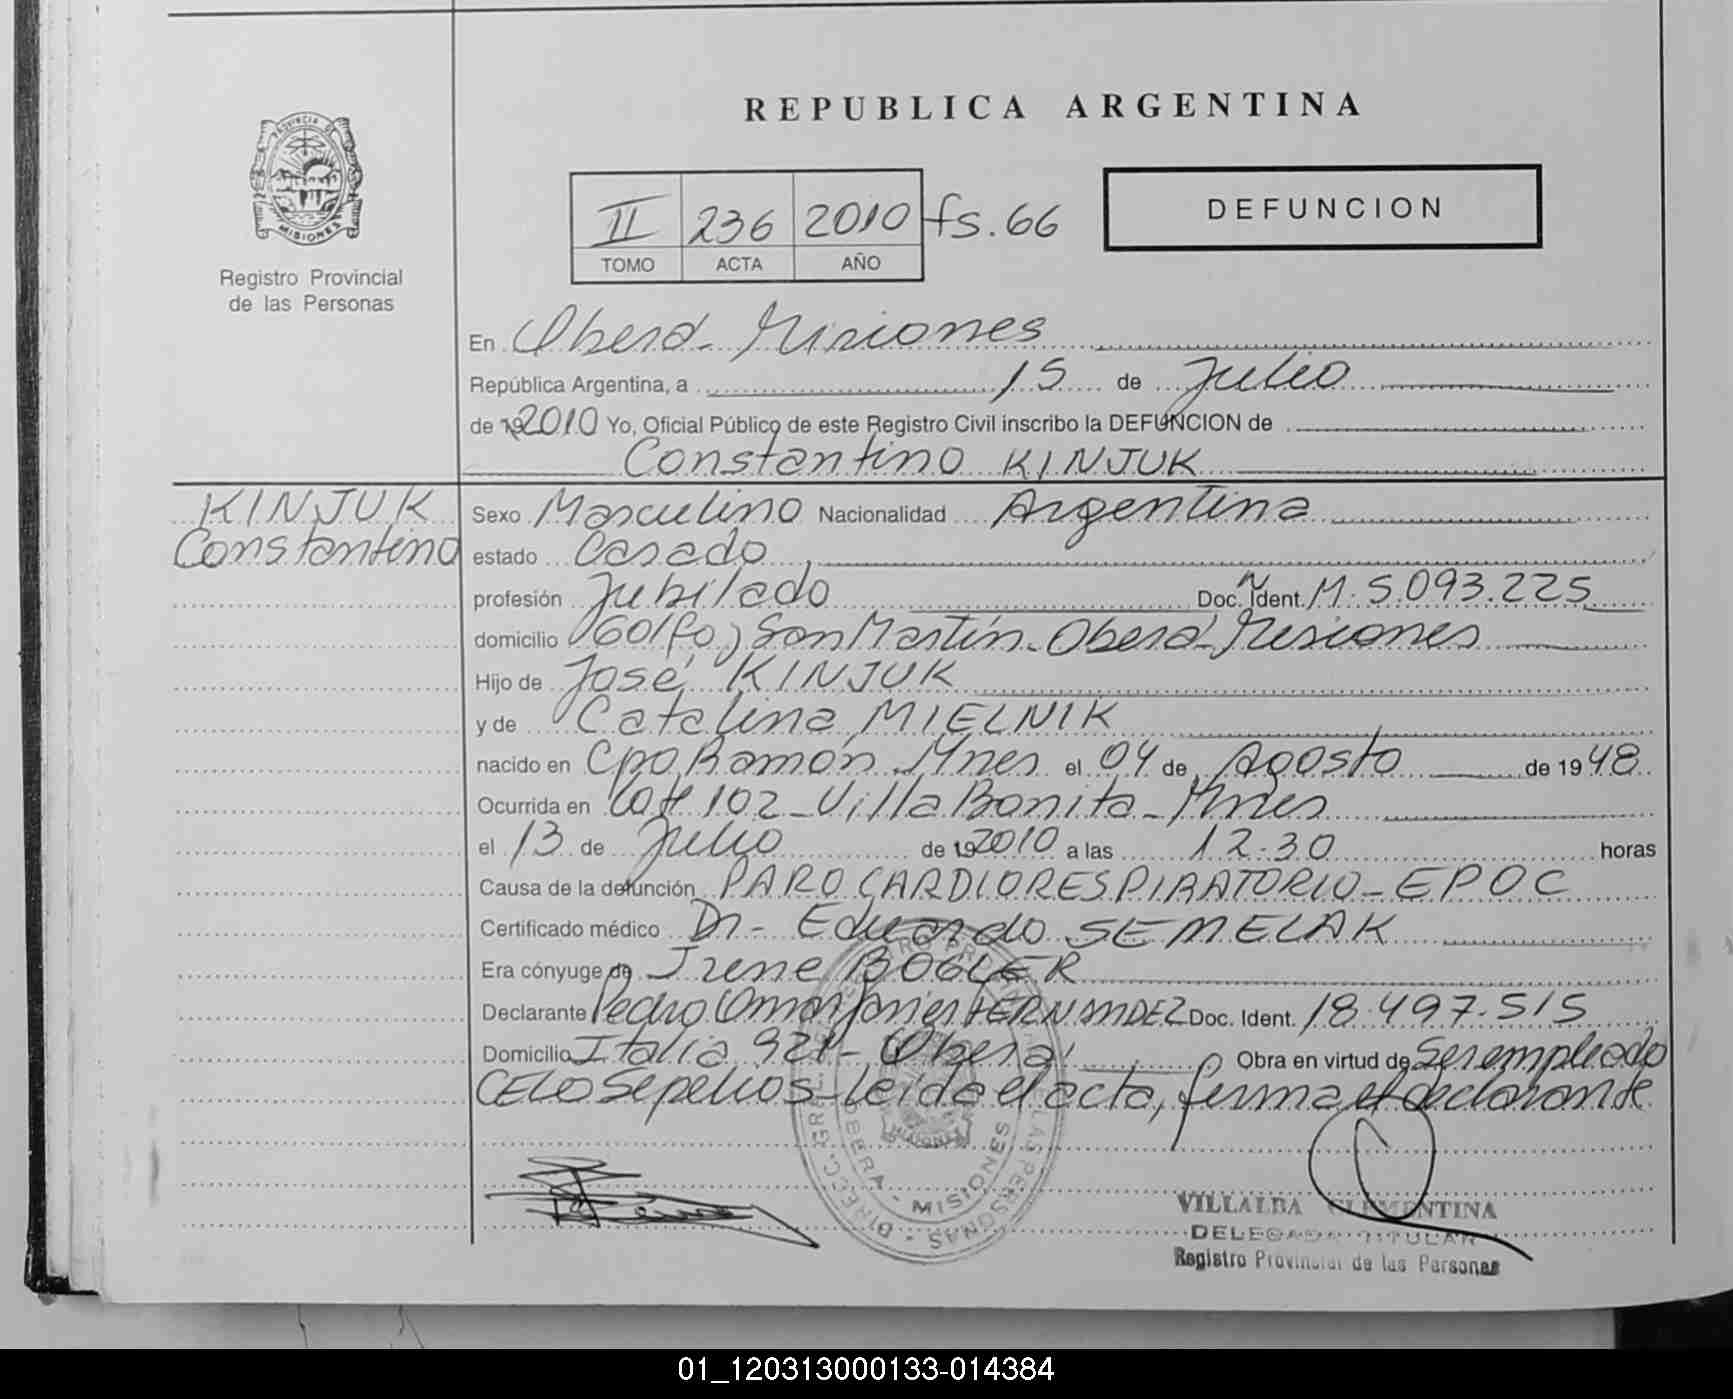 REPUBLICA ARGENTINA
PROVINCIA DE
MISIONES
Registro Provincial
de las Personas
II 236 2010 fs. 66
TOMO ACTA AÑO
DEFUNCION
En Oberá - Misiones
República Argentina, a 15 de Julio
de 192010 Yo, Oficial Público de este Registro Civil inscribo la DEFUNCION de
Constantino KINJUK
KINJUK
Constantino
Sexo Masculino Nacionalidad Argentina
estado Casado
profesión Jubilado Doc. Ident. M. 5.093.225
domicilio Golfo, San Martín - Oberá - Misiones
Hijo de José KINJUK
y de Catalina MIELNIK
nacido en Cpo. Ramón Mnes el 04 de Agosto de 1948
Ocurrida en Lote 102 - Villa Bonita - Mnes
el 13 de Julio de 192010 a las 12.30 horas
Causa de la defunción PARO CARDIORESPIRATORIO - EPOC
Certificado médico Dr - Eduardo SEMELAK
Era cónyuge de Irene BOGLER
Declarante Pedro Omar Javier HERNANDEZ Doc. Ident. 18.497.515
Domicilio Italia 921 - Oberá Obra en virtud de Ser empleado
CELO Sepelios - Leída el acta, firma el declarante
OBERA - MISIONES
VILLALBA CLEMENTINA
DELEGADA TITULAR
Registro Provincial de las Personas
01_120313000133-014384